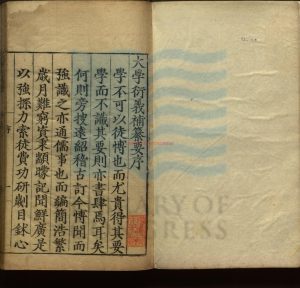 大學衍義補纂要序
學不可以徒博也而尤貴得其要
學而不識其要則亦書肆焉耳矣
何則旁搜遠紹稽古訂今博聞而
強識之亦通儒事也而編簡浩繁
歲月難窮資秉顓矇記聞鮮廣是
以強探力索徒費功研劌目鉥心
序
ARY OF
GRESS